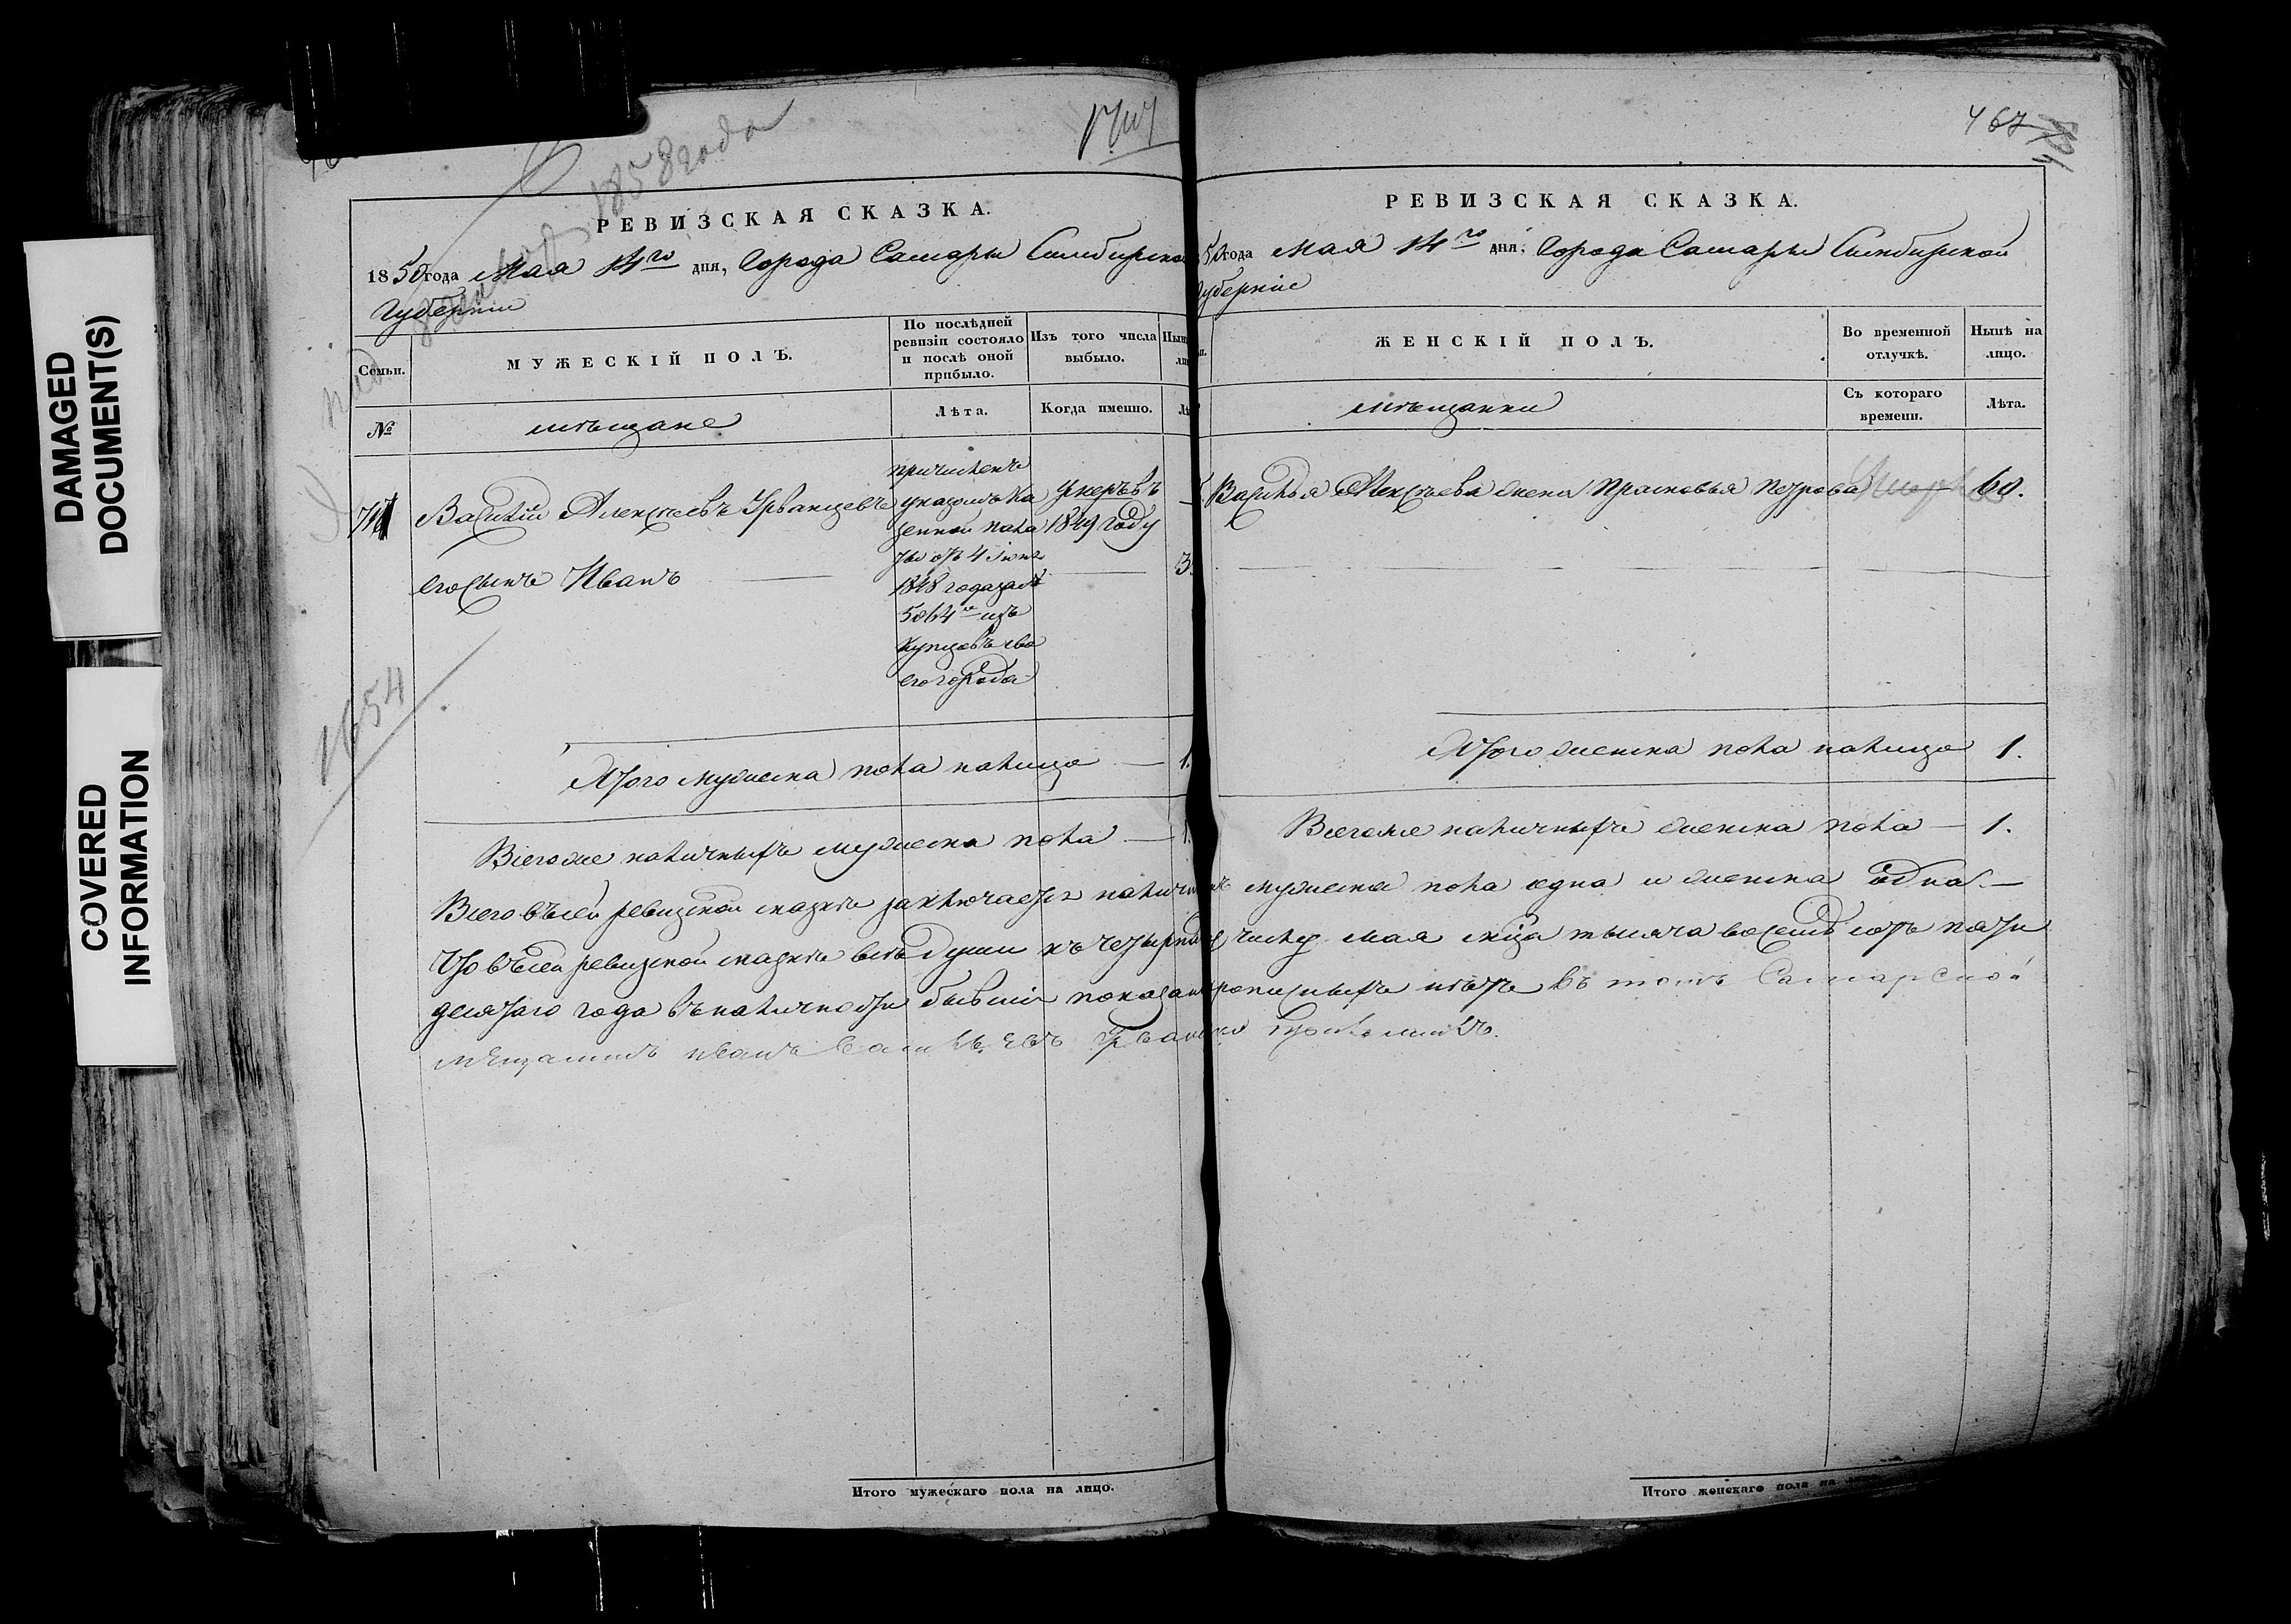 DAMAGED
DOCUMENT(S)
COVERED
INFORMATION
1858 года
1654
РЕВИЗСКАЯ СКАЗКА.
1850 года Мая 14го дня, Города Самары Симбирской
Губернии
Семьи.
МУЖЕСКІЙ ПОЛЪ.
По послѣдней
ревизіи состояло
и послѣ оной
прибыло.
Изъ того числа
выбыло.
№
мѣщане
Лѣта.
Когда именно.
Василий Алексѣевъ Урванцевъ
его сынъ Иванъ
причисленъ
указомъ Ка
зенной пала
ты отъ 4 Июня
1848 года за №
5064м изъ
купцовъ сво
его города
умеръ въ
1849 году
Итого мужеска пола налицо — 1.
Всего же наличныхъ мужеска пола — 1.
467
РЕВИЗСКАЯ СКАЗКА.
50 года Мая 14го дня, Города Самары Симбирской
Губерніи
ЖЕНСКІЙ ПОЛЪ.
Во временной
отлучкѣ.
Нынѣ на
лицо.
мѣщанки
Съ котораго
времени.
Лѣта.
Василья Алексѣева жена Прасковья Петрова — 60.
Итого женска пола налицо 1.
Всего же наличныхъ женска пола — 1.
Всего въ сей ревизской сказкѣ заключается мужеска пола одна и женска одна. —
Что въ сей ревизской сказкѣ всѣ души къ числу мая мца тысяча восемь сотъ пяти
десятаго года въ наличности бывшія показаны прописныхъ нѣтъ въ томъ Самарской
мещанинъ иванъ васильевъ
Итого мужескаго пола на лицо.
Итого женскаго пола на